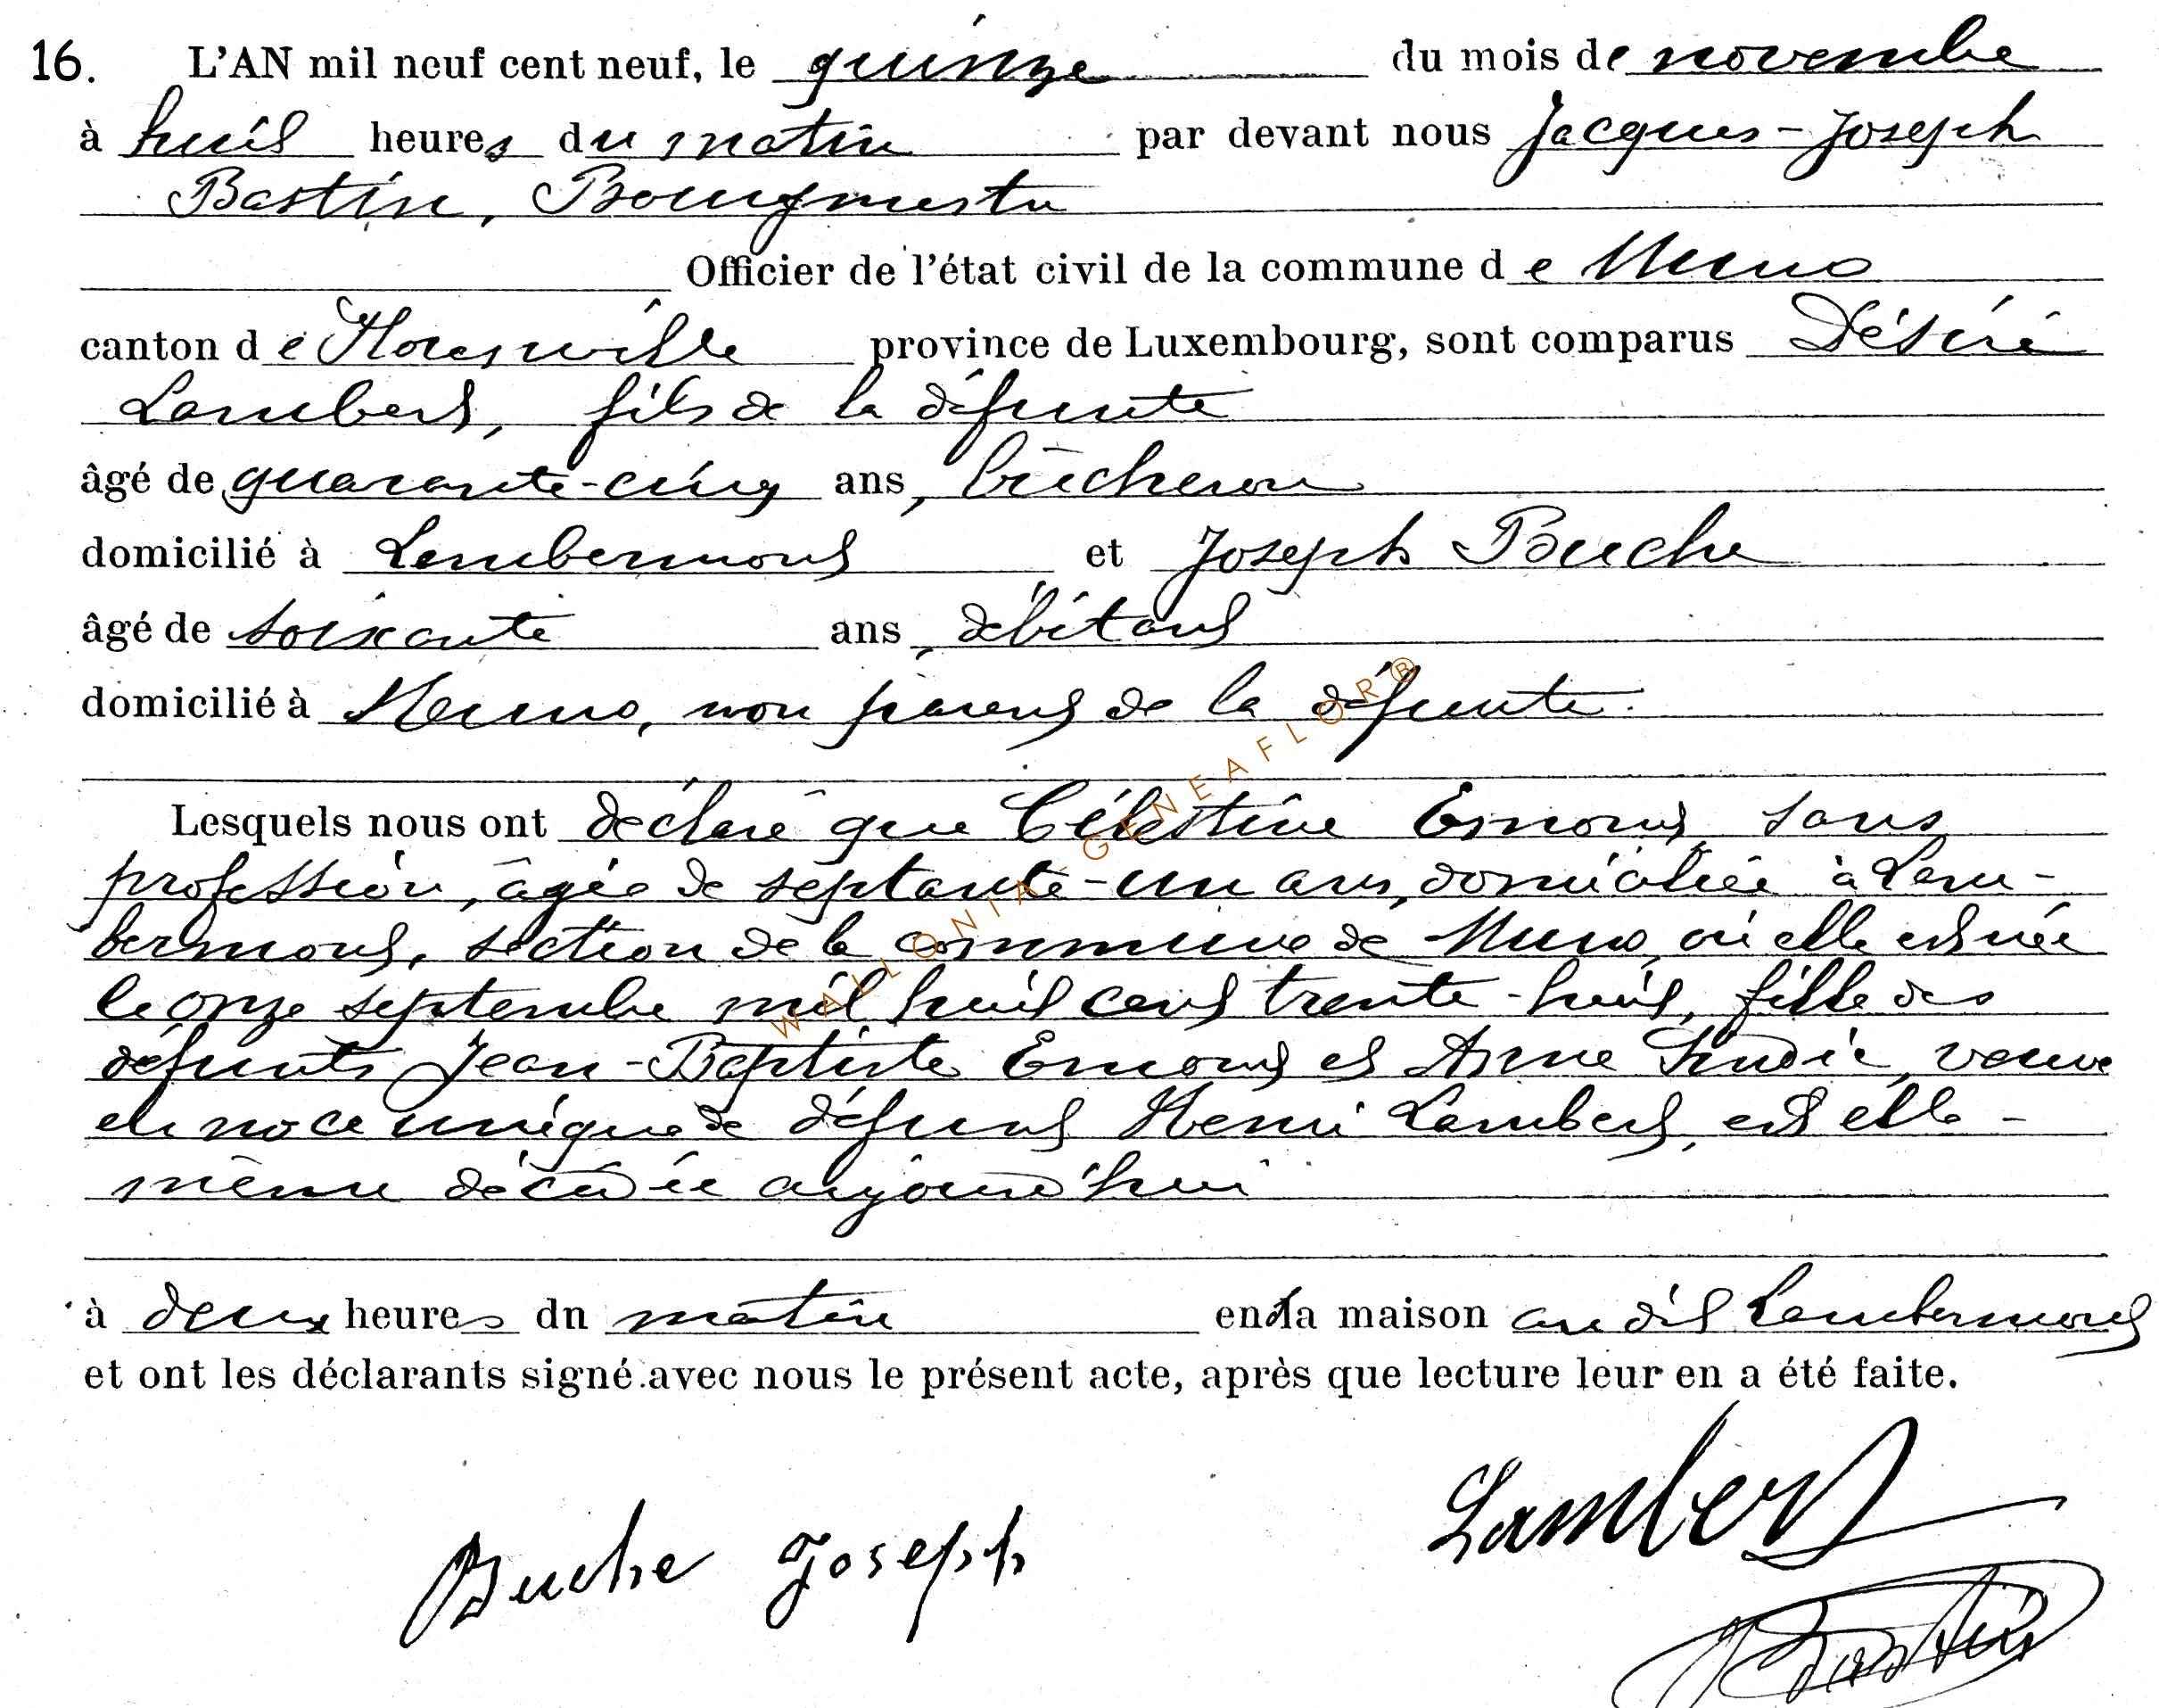 16. L'AN mil neuf cent neuf, le quinze du mois de novembre
à huit heures du matin par devant nous Jacques-Joseph
Bastin, Bourgmestre
Officier de l'état civil de la commune de Muno
canton de Florenville province de Luxembourg, sont comparus Désiré
Lambert, fils de la défunte
âgé de quarante-cinq ans, bûcheron
domicilié à Lambermont et Joseph Buche
âgé de soixante ans, débitant
domicilié à Muno, non parent de la défunte.
Lesquels nous ont déclaré que Célestine Emond, sans
profession, âgée de septante-un ans, domiciliée à Lam-
bermont, section de la commune de Muno, où elle est née
le onze septembre mil huit cent trente-huit, fille des
défunts Jean-Baptiste Emond et Anne, veuve
en noce unique de défunt Henri Lambert, est elle-
même décédée aujourd'hui
à deux heures du matin en la maison au dit Lambermont
et ont les déclarants signé avec nous le présent acte, après que lecture leur en a été faite.
Lambert
Buche Joseph
JBastin
WALLONIA-GENEAFLOR®